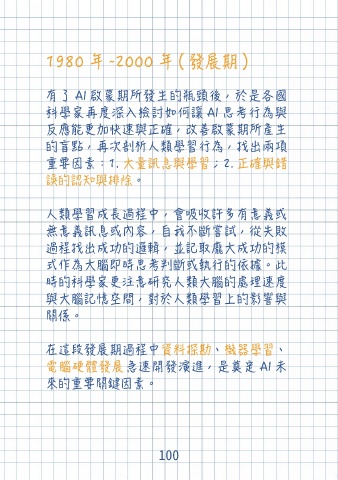 1980 年 -2000 年 ( 發展期 )
有了 AI 啟蒙期所發生的瓶頸後，於是各國
科學家再度深入檢討如何讓 AI 思考行為與
反應能更加快速與正確，改善啟蒙期所產生
的盲點，再次剖析人類學習行為，找出兩項
重要因素：1. 大量訊息與學習；2. 正確與錯
誤的認知與排除。
人類學習成長過程中，會吸收許多有意義或
無意義訊息或內容，自我不斷嘗試，從失敗
過程找出成功的邏輯，並記取龐大成功的模
式作為大腦即時思考判斷或執行的依據。此
時的科學家更注意研究人類大腦的處理速度
與大腦記憶空間，對於人類學習上的影響與
關係。
在這段發展期過程中資料探勘、機器學習、
電腦硬體發展急速開發演進，是奠定 AI 未
來的重要關鍵因素。
100